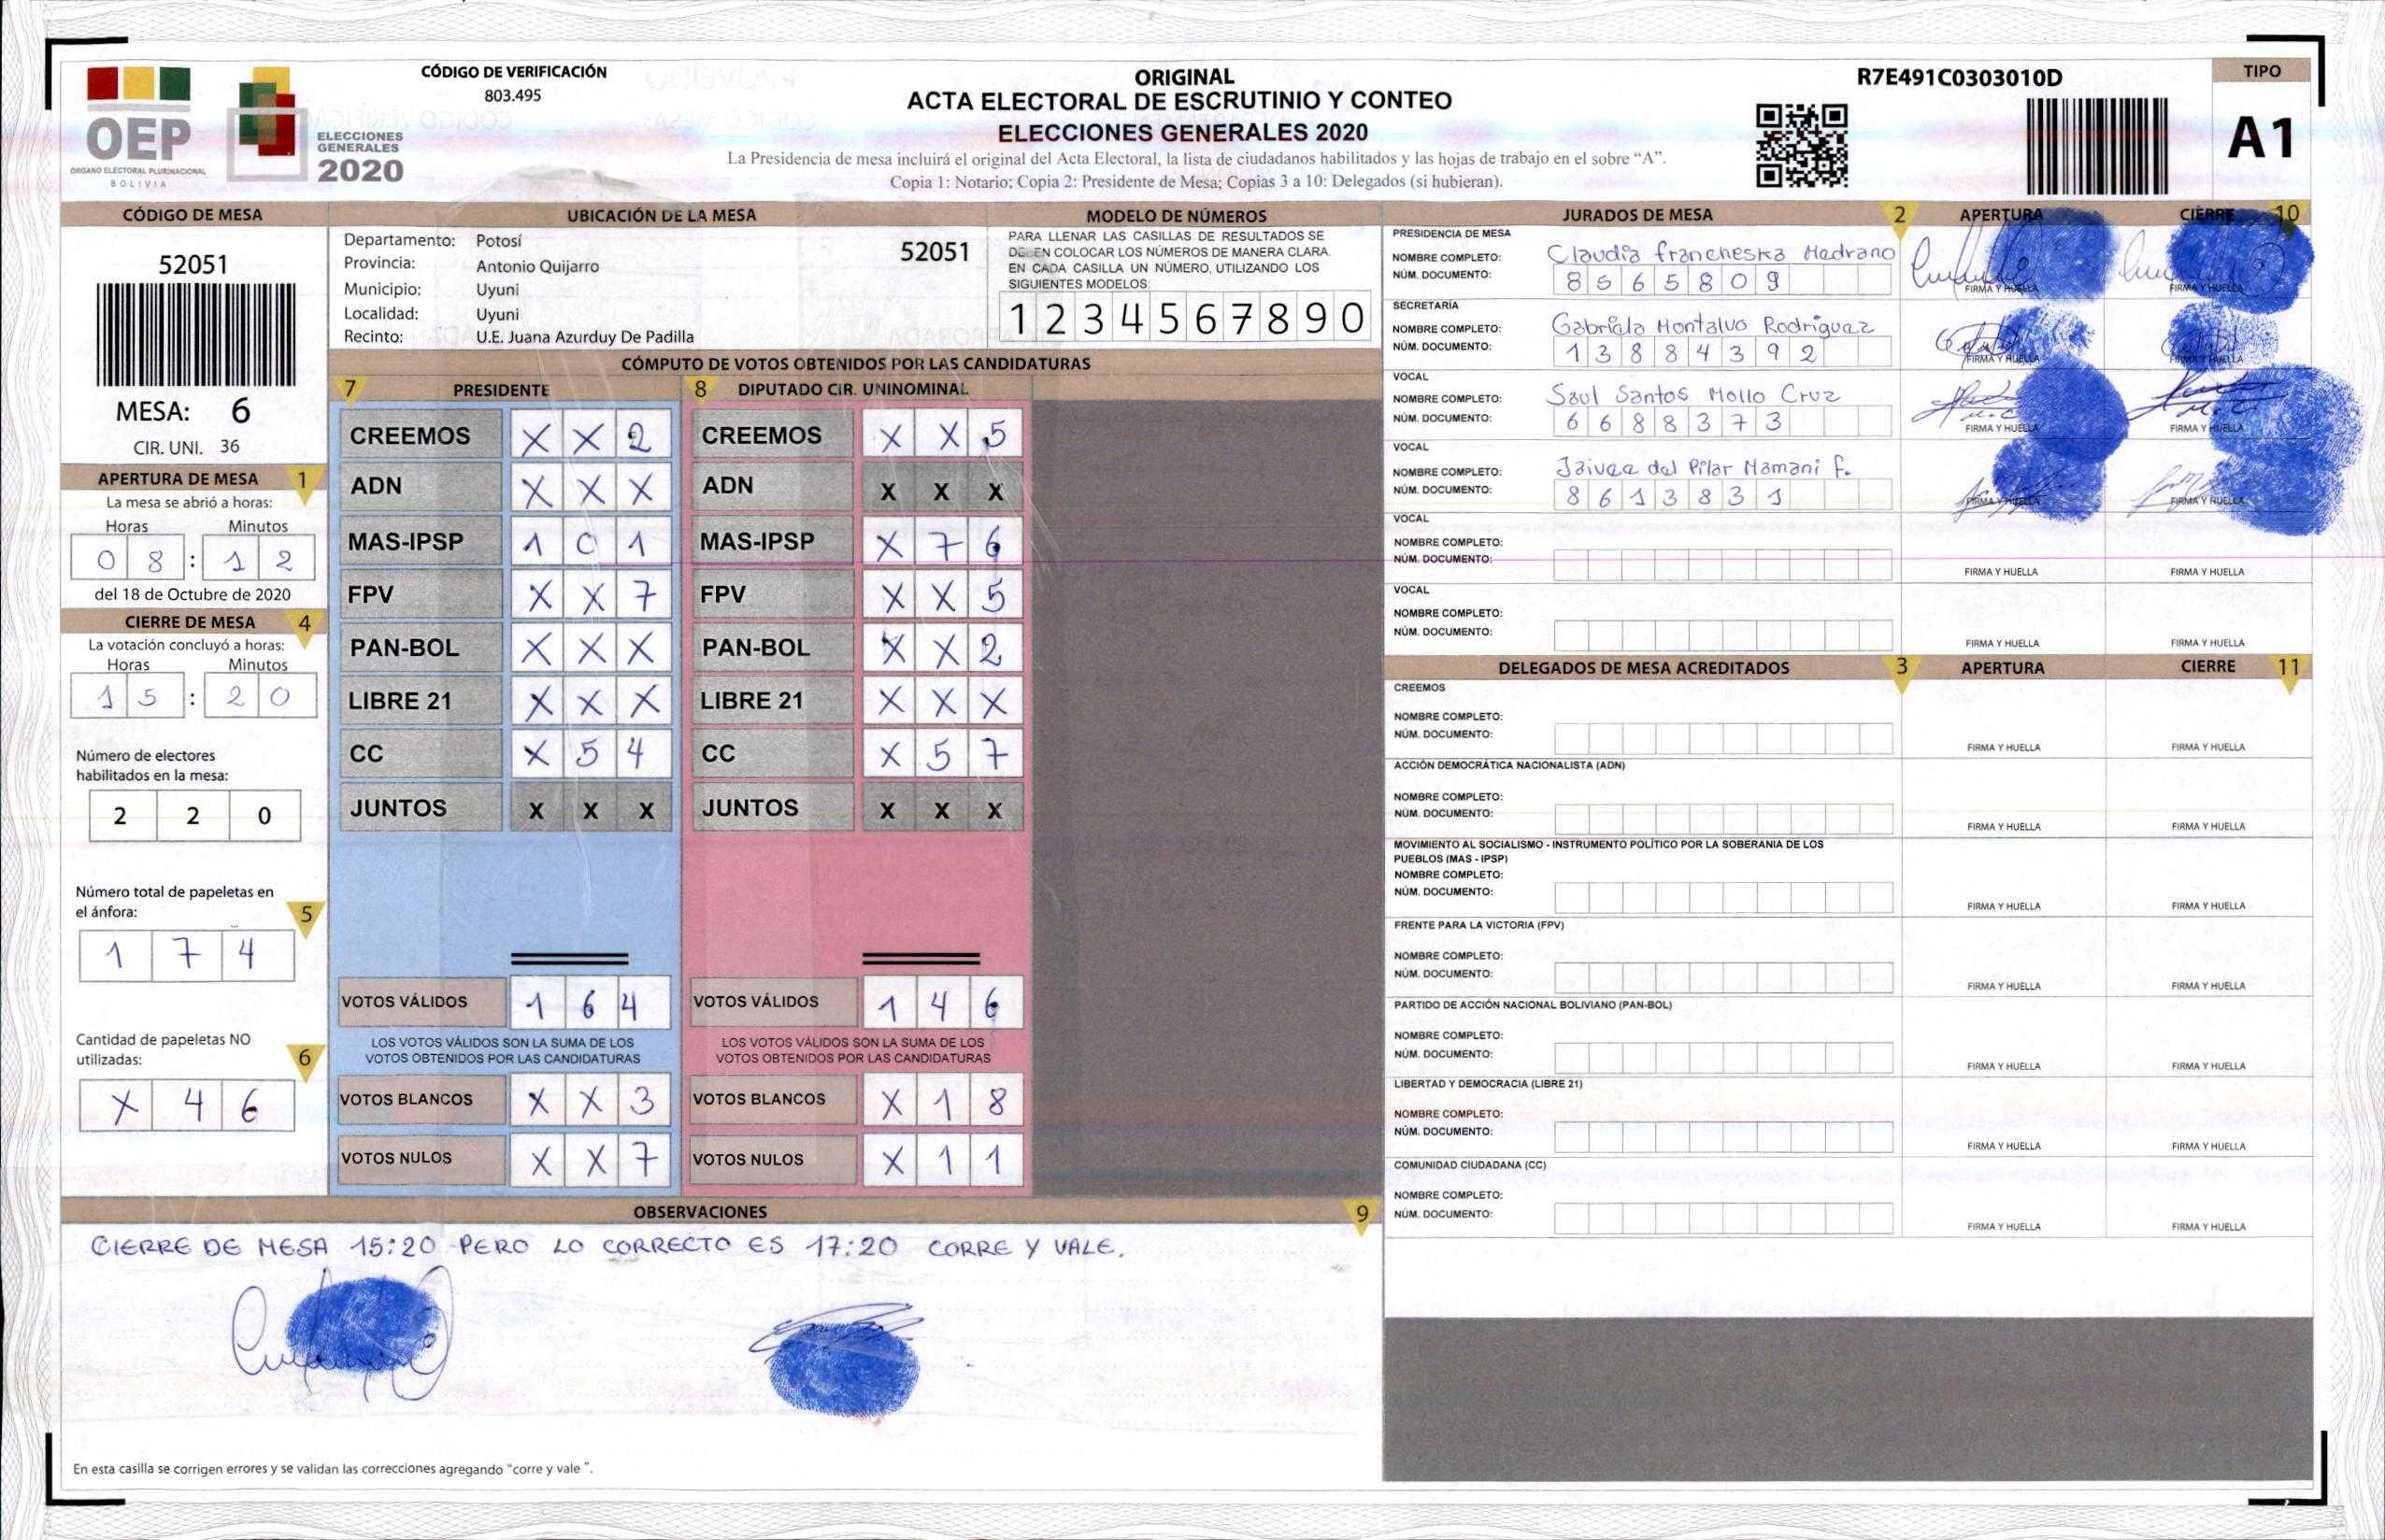 OEP
ÓRGANO ELECTORAL PLURINACIONAL
BOLIVIA
ELECCIONES
GENERALES
2020
CÓDIGO DE VERIFICACIÓN
803.495
ORIGINAL
ACTA ELECTORAL DE ESCRUTINIO Y CONTEO
ELECCIONES GENERALES 2020
La Presidencia de mesa incluirá el original del Acta Electoral, la lista de ciudadanos habilitados y las hojas de trabajo en el sobre “A”.
Copia 1: Notario; Copia 2: Presidente de Mesa; Copias 3 a 10: Delegados (si hubieran).
R7E491C0303010D
TIPO
A1
CÓDIGO DE MESA
52051
MESA: 6
CIR. UNI. 36
APERTURA DE MESA 1
La mesa se abrió a horas:
Horas Minutos
0 8 : 1 2
del 18 de Octubre de 2020
CIERRE DE MESA 4
La votación concluyó a horas:
Horas Minutos
1 5 : 2 0
Número de electores
habilitados en la mesa:
2 2 0
Número total de papeletas en
el ánfora:
5
1 7 4
Cantidad de papeletas NO
utilizadas:
6
X 4 6
UBICACIÓN DE LA MESA
Departamento: Potosí
52051
Provincia: Antonio Quijarro
Municipio: Uyuni
Localidad: Uyuni
Recinto: U.E. Juana Azurduy De Padilla
MODELO DE NÚMEROS
PARA LLENAR LAS CASILLAS DE RESULTADOS SE
DEBEN COLOCAR LOS NÚMEROS DE MANERA CLARA.
EN CADA CASILLA UN NÚMERO, UTILIZANDO LOS
SIGUIENTES MODELOS:
1 2 3 4 5 6 7 8 9 0
CÓMPUTO DE VOTOS OBTENIDOS POR LAS CANDIDATURAS
7 PRESIDENTE
CREEMOS X X 2
ADN X X X
MAS-IPSP 1 0 1
FPV X X 7
PAN-BOL X X X
LIBRE 21 X X X
CC X 5 4
JUNTOS X X X
VOTOS VÁLIDOS 1 6 4
LOS VOTOS VÁLIDOS SON LA SUMA DE LOS
VOTOS OBTENIDOS POR LAS CANDIDATURAS
VOTOS BLANCOS X X 3
VOTOS NULOS X X 7
8 DIPUTADO CIR. UNINOMINAL
CREEMOS X X 5
ADN X X X
MAS-IPSP X 7 6
FPV X X 5
PAN-BOL X X 2
LIBRE 21 X X X
CC X 5 7
JUNTOS X X X
VOTOS VÁLIDOS 1 4 6
LOS VOTOS VÁLIDOS SON LA SUMA DE LOS
VOTOS OBTENIDOS POR LAS CANDIDATURAS
VOTOS BLANCOS X 1 8
VOTOS NULOS X 1 1
JURADOS DE MESA 2 APERTURA CIERRE 10
PRESIDENCIA DE MESA
NOMBRE COMPLETO: Claudia francheska Medrano
NÚM. DOCUMENTO: 8 5 6 5 8 0 9
FIRMA Y HUELLA FIRMA Y HUELLA
SECRETARÍA
NOMBRE COMPLETO: Gabriela Montalvo Rodriguez
NÚM. DOCUMENTO: 1 3 8 8 4 3 9 2
FIRMA Y HUELLA FIRMA Y HUELLA
VOCAL
NOMBRE COMPLETO: Saul Santos Mollo Cruz
NÚM. DOCUMENTO: 6 6 8 8 3 7 3
FIRMA Y HUELLA FIRMA Y HUELLA
VOCAL
NOMBRE COMPLETO: del Pilar Mamani F.
NÚM. DOCUMENTO: 8 6 1 3 8 3 1
FIRMA Y HUELLA FIRMA Y HUELLA
VOCAL
NOMBRE COMPLETO:
NÚM. DOCUMENTO:
FIRMA Y HUELLA FIRMA Y HUELLA
VOCAL
NOMBRE COMPLETO:
NÚM. DOCUMENTO:
FIRMA Y HUELLA FIRMA Y HUELLA
DELEGADOS DE MESA ACREDITADOS 3 APERTURA CIERRE 11
CREEMOS
NOMBRE COMPLETO:
NÚM. DOCUMENTO:
FIRMA Y HUELLA FIRMA Y HUELLA
ACCIÓN DEMOCRÁTICA NACIONALISTA (ADN)
NOMBRE COMPLETO:
NÚM. DOCUMENTO:
FIRMA Y HUELLA FIRMA Y HUELLA
MOVIMIENTO AL SOCIALISMO - INSTRUMENTO POLÍTICO POR LA SOBERANIA DE LOS
PUEBLOS (MAS - IPSP)
NOMBRE COMPLETO:
NÚM. DOCUMENTO:
FIRMA Y HUELLA FIRMA Y HUELLA
FRENTE PARA LA VICTORIA (FPV)
NOMBRE COMPLETO:
NÚM. DOCUMENTO:
FIRMA Y HUELLA FIRMA Y HUELLA
PARTIDO DE ACCIÓN NACIONAL BOLIVIANO (PAN-BOL)
NOMBRE COMPLETO:
NÚM. DOCUMENTO:
FIRMA Y HUELLA FIRMA Y HUELLA
LIBERTAD Y DEMOCRACIA (LIBRE 21)
NOMBRE COMPLETO:
NÚM. DOCUMENTO:
FIRMA Y HUELLA FIRMA Y HUELLA
COMUNIDAD CIUDADANA (CC)
NOMBRE COMPLETO:
NÚM. DOCUMENTO:
FIRMA Y HUELLA FIRMA Y HUELLA
OBSERVACIONES 9
CIERRE DE MESA 15:20 PERO LO CORRECTO ES 17:20 CORRE Y VALE.
En esta casilla se corrigen errores y se validan las correcciones agregando “corre y vale ”.